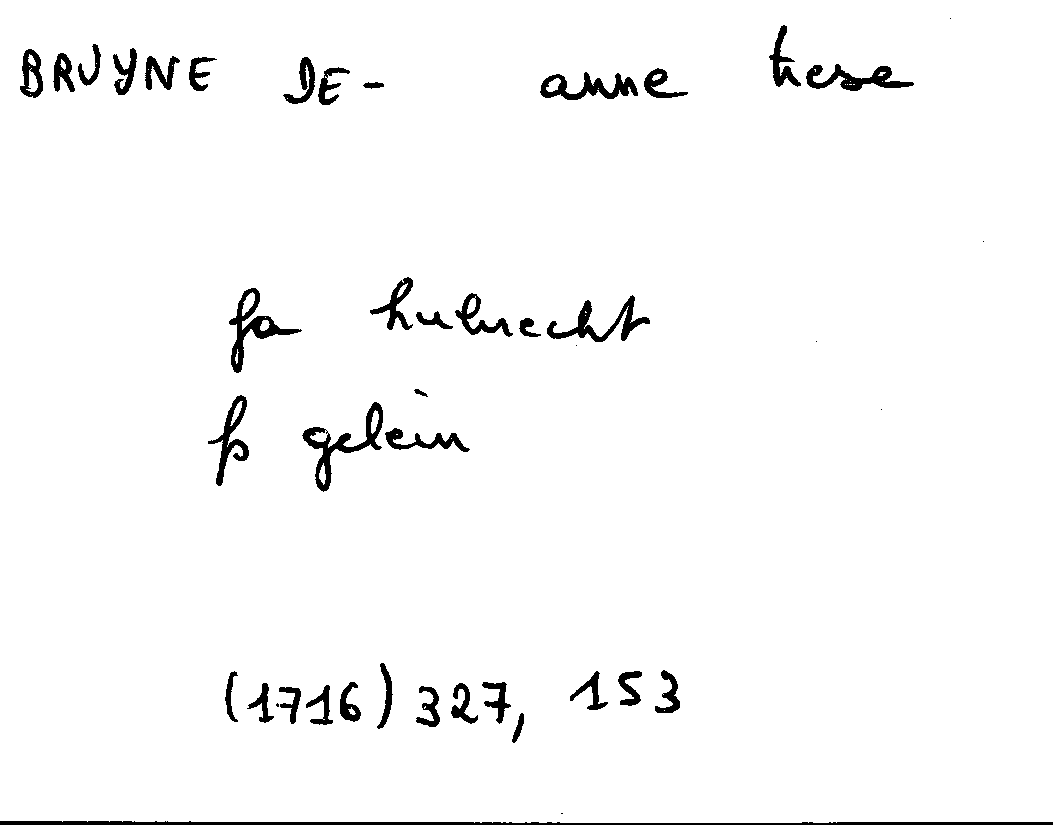 BRUYNE DE- anne trese
fa hubrecht
fs gelein
(1716) 327, 153